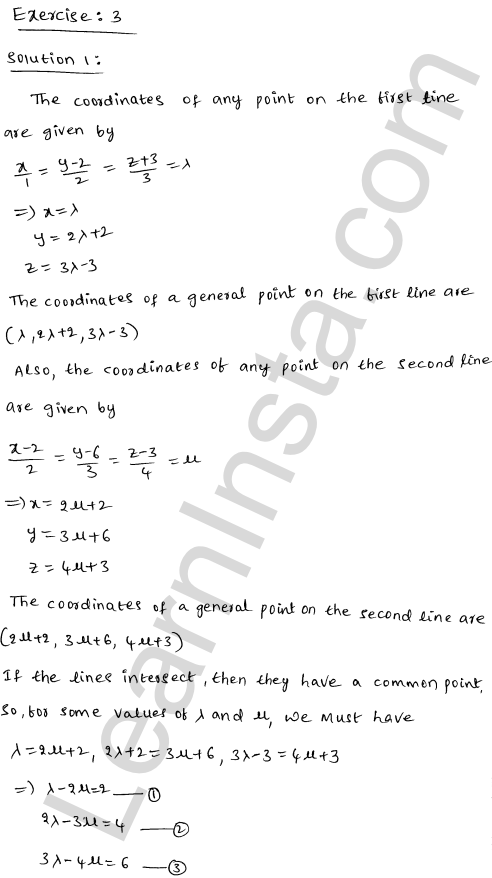 Exercise: 3
Solution 1:
The coordinates of any point on the first line
are given by
x/1 = y-2/2 = z+3/3 = λ
=) x=λ
y = 2λ+2
z = 3λ-3
The coordinates of a general point on the first line are
(λ, 2λ+2, 3λ-3)
Also, the coordinates of any point on the second line
are given by
x-2/2 = y-6/3 = z-3/4 = μ
=) x = 2μ+2
y = 3μ+6
z = 4μ+3
The coordinates of a general point on the second line are
(2μ+2, 3μ+6, 4μ+3)
If the lines intersect, then they have a common point,
So, for some values of λ and μ, we must have
λ=2μ+2, 2λ+2=3μ+6, 3λ-3=4μ+3
=) λ-2μ=2 — ①
2λ-3μ=4 — ②
3λ-4μ=6 — ③
LearnInsta.com